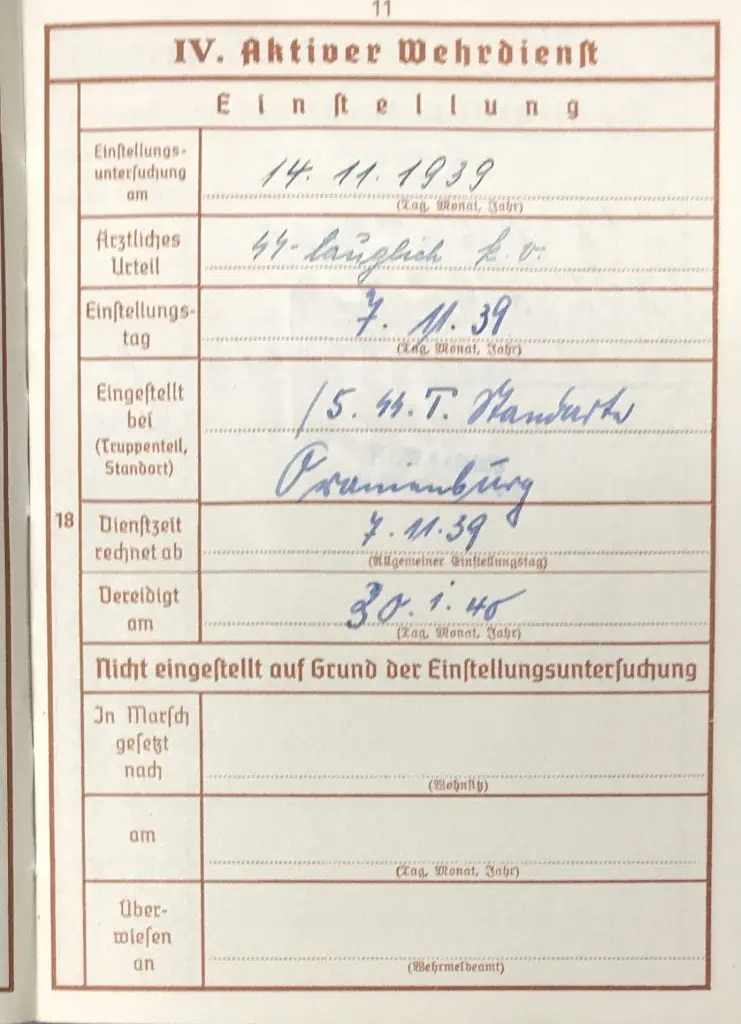 11
IV. Aktiver Wehrdienst
Einstellung
Einstellungs-
untersuchung
am
14. 11. 1939
(Tag, Monat, Jahr)
Ärztliches
Urteil
SS-tauglich k. v.
Einstellungs-
tag
7. 11. 39
(Tag, Monat, Jahr)
Eingestellt
bei
(Truppenteil,
Standort)
/5. SS. T. Standarte
Oranienburg
18
Dienstzeit
rechnet ab
7. 11. 39
(Allgemeiner Einstellungstag)
Vereidigt
am
30. 1. 40
(Tag, Monat, Jahr)
Nicht eingestellt auf Grund der Einstellungsuntersuchung
In Marsch
gesetzt
nach
(Wohnsitz)
am
(Tag, Monat, Jahr)
Über-
wiesen
an
(Wehrmeldeamt)